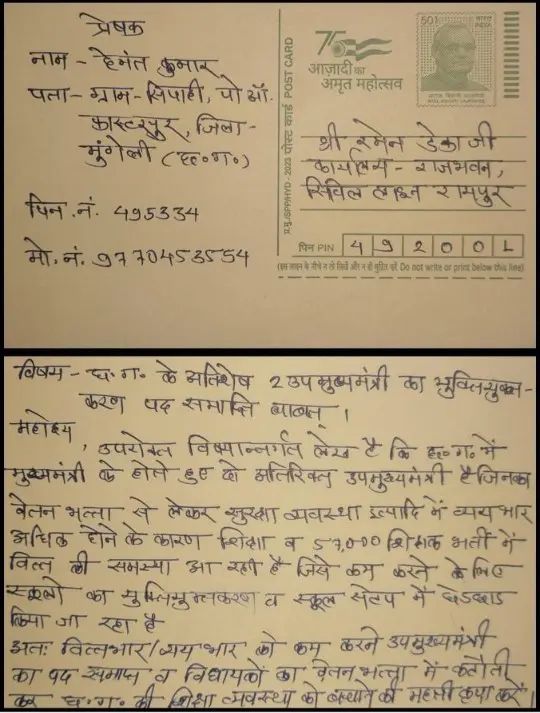 प्रेषक
नाम - हेमंत कुमार
पता - ग्राम - सिपाही, पो ऑ.
फास्टरपुर, जिला -
मुंगेली (छ.ग.)
पिन. नं. 495334
मो. नं. 9770453554
प्र.मु./SPP/HYD - 2023 पोस्ट कार्ड POST CARD
75
आज़ादी का
अमृत महोत्सव
50
भारत
INDIA
श्री रमेन डेका जी
कार्यालय - राजभवन,
सिविल लाइन रायपुर
पिन PIN 492001
(इस लाइन के नीचे न तो लिखें और न ही मुद्रित करें Do not write or print below this line)
विषय - छ.ग. के अतिशेष 2 उपमुख्यमंत्री का युक्तियुक्त-
करण पद समाप्ति बाबत् ।
महोदय,
उपरोक्त विषयान्तर्गत लेख है कि छ.ग. में
मुख्यमंत्री के होते हुए दो अतिरिक्त उपमुख्यमंत्री है जिनका
वेतन भत्ता से लेकर सुरक्षा व्यवस्था इत्यादि में व्यय भार
अधिक होने के कारण शिक्षा व 57,000 शिक्षक भर्ती में
वित्त की समस्या आ रही है जिसे कम करने के लिए
स्कूलो का युक्तियुक्तकरण व स्कूल सेटप में छेडछाड
किया जा रहा है
अतः वित्तभार/व्यय भार को कम करने उपमुख्यमंत्री
का पद समाप्त व विधायकों का वेतन भत्ता में कटौती
कर छ.ग. की शिक्षा व्यवस्था को बचाने की महती कृपा करें।